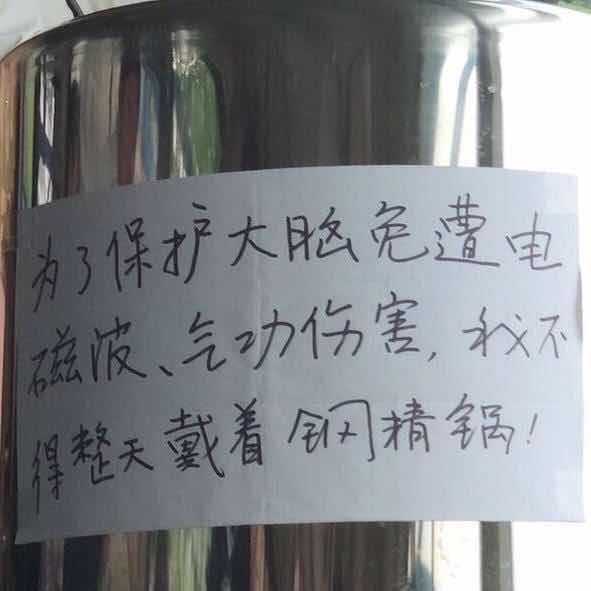 为了保护大脑免遭电
磁波、气功伤害,我不
得整天戴着钢精锅!